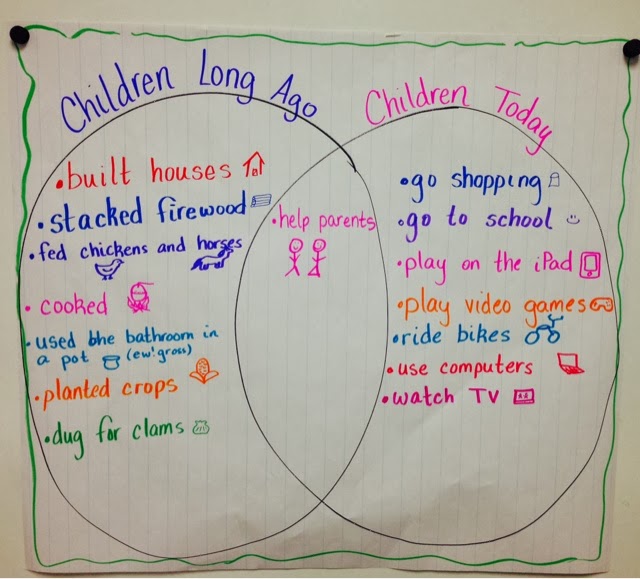 Children Long Ago
Children Today
•built houses
•stacked firewood
•fed chickens and horses
•cooked
•used the bathroom in
a pot (ew! gross)
•planted crops
•dug for clams
•help parents
•go shopping
•go to school
•play on the iPad
•play video games
•ride bikes
•use computers
•watch TV